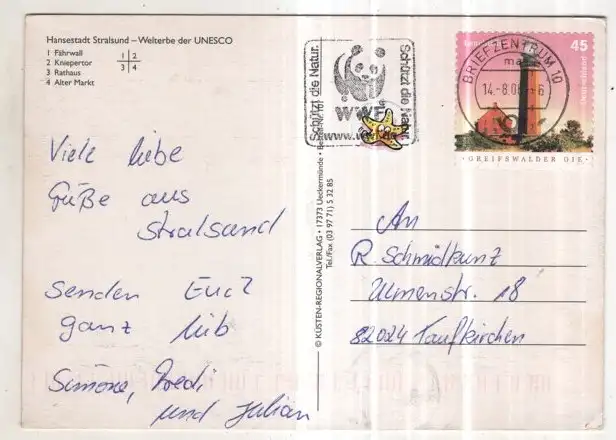 Hansestadt Stralsund – Welterbe der UNESCO
1 Fährwall
2 Kniepertor
3 Rathaus
4 Alter Markt
1 2
3 4
Viele liebe
Grüße aus
Stralsund
Senden Euch
ganz lieb
Simone,
und Julian
© KÜSTEN-REGIONALVERLAG • 17373 Ueckermünde •
Tel./Fax (03 97 71) 5 32 85
Schützt die Natur.
WWF
Schützt die Natur.
BRIEFZENTRUM 10
14.-8.06-
45
GREIFSWALDER OIE
An
R. Schmidkunz
Ulmenstr. 18
82024 Taufkirchen